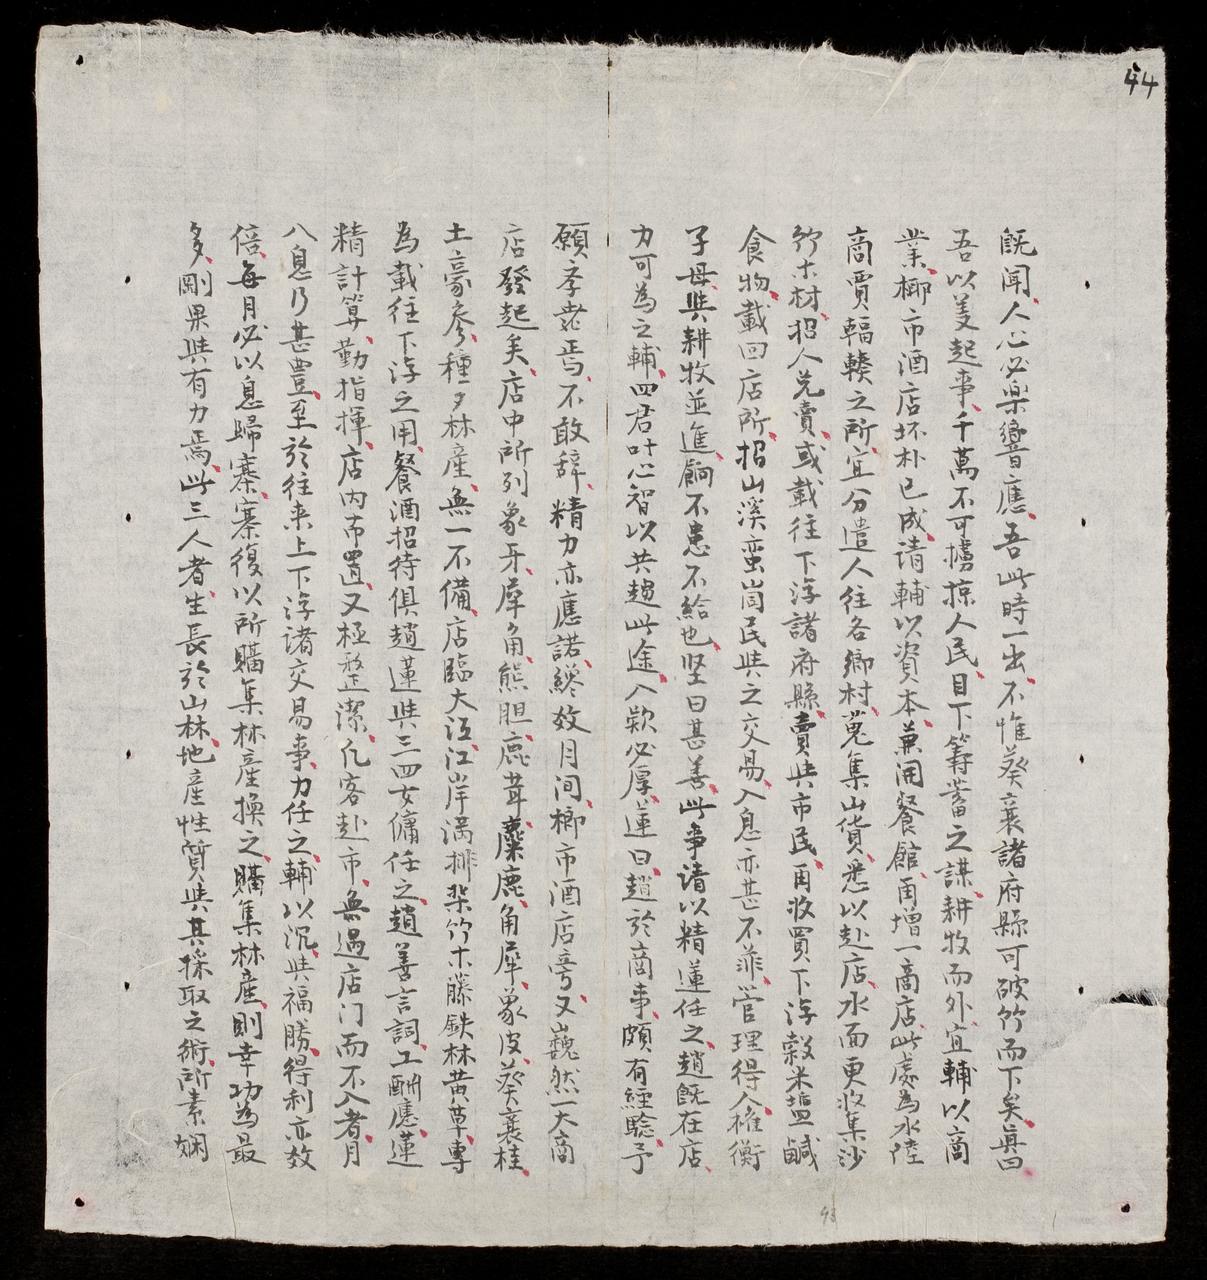 44
既闻人心必樂響應吾此時一出不惟葵襄諸府縣可破竹而下矣眞曰
吾以美起事千萬不可擄掠人民目下籌蓄之謀耕牧而外宜輔以商
業榔市酒店坏朴已成请輔以資本兼開餐館甬增一商店此處為水陸
商賈輻輳之所宜分遣人往各鄉村蒐集山貨悉以赴店水面更收集沙
竹木材招人兑賣或載往下浮諸府縣賣與市民甬收買下浮穀米塩鹹
食物載回店所招山溪蛮峝民與之交易入息亦甚不菲管理得人權衡
子母與耕牧並進餉不患不給也坚曰甚善此事请以精蓮任之趙既在店
力可為之輔四君叶心智以共趙此途入欵必厚蓮曰趙於商事頗有經驗予
願孝老焉不敢辞精力亦應諾纔效月间榔市酒店旁又巍然一大商
店發起矣店中所列象牙犀角熊胆鹿茸麋鹿角犀象皮葵襄桂
土豪參種夕林產無一不備店臨大江江岸满排梁竹木藤鉄林黄草專
為載往下浮之用餐酒招待俱趙蓮與三四女傭任之趙善言詞工酬應蓮
精計算勤指揮店内布置又極整潔凢客赴市無過店门而不入者月
八息乃甚豊至於往来上下浮諸交易事力任之輔以沉與福勝得利亦效
倍每月必以息歸寨寨復以所購集林產換之購集林產則幸功為最
多剛果與有力焉此三人者生長於山林地產性質與其採取之術所素娴
93